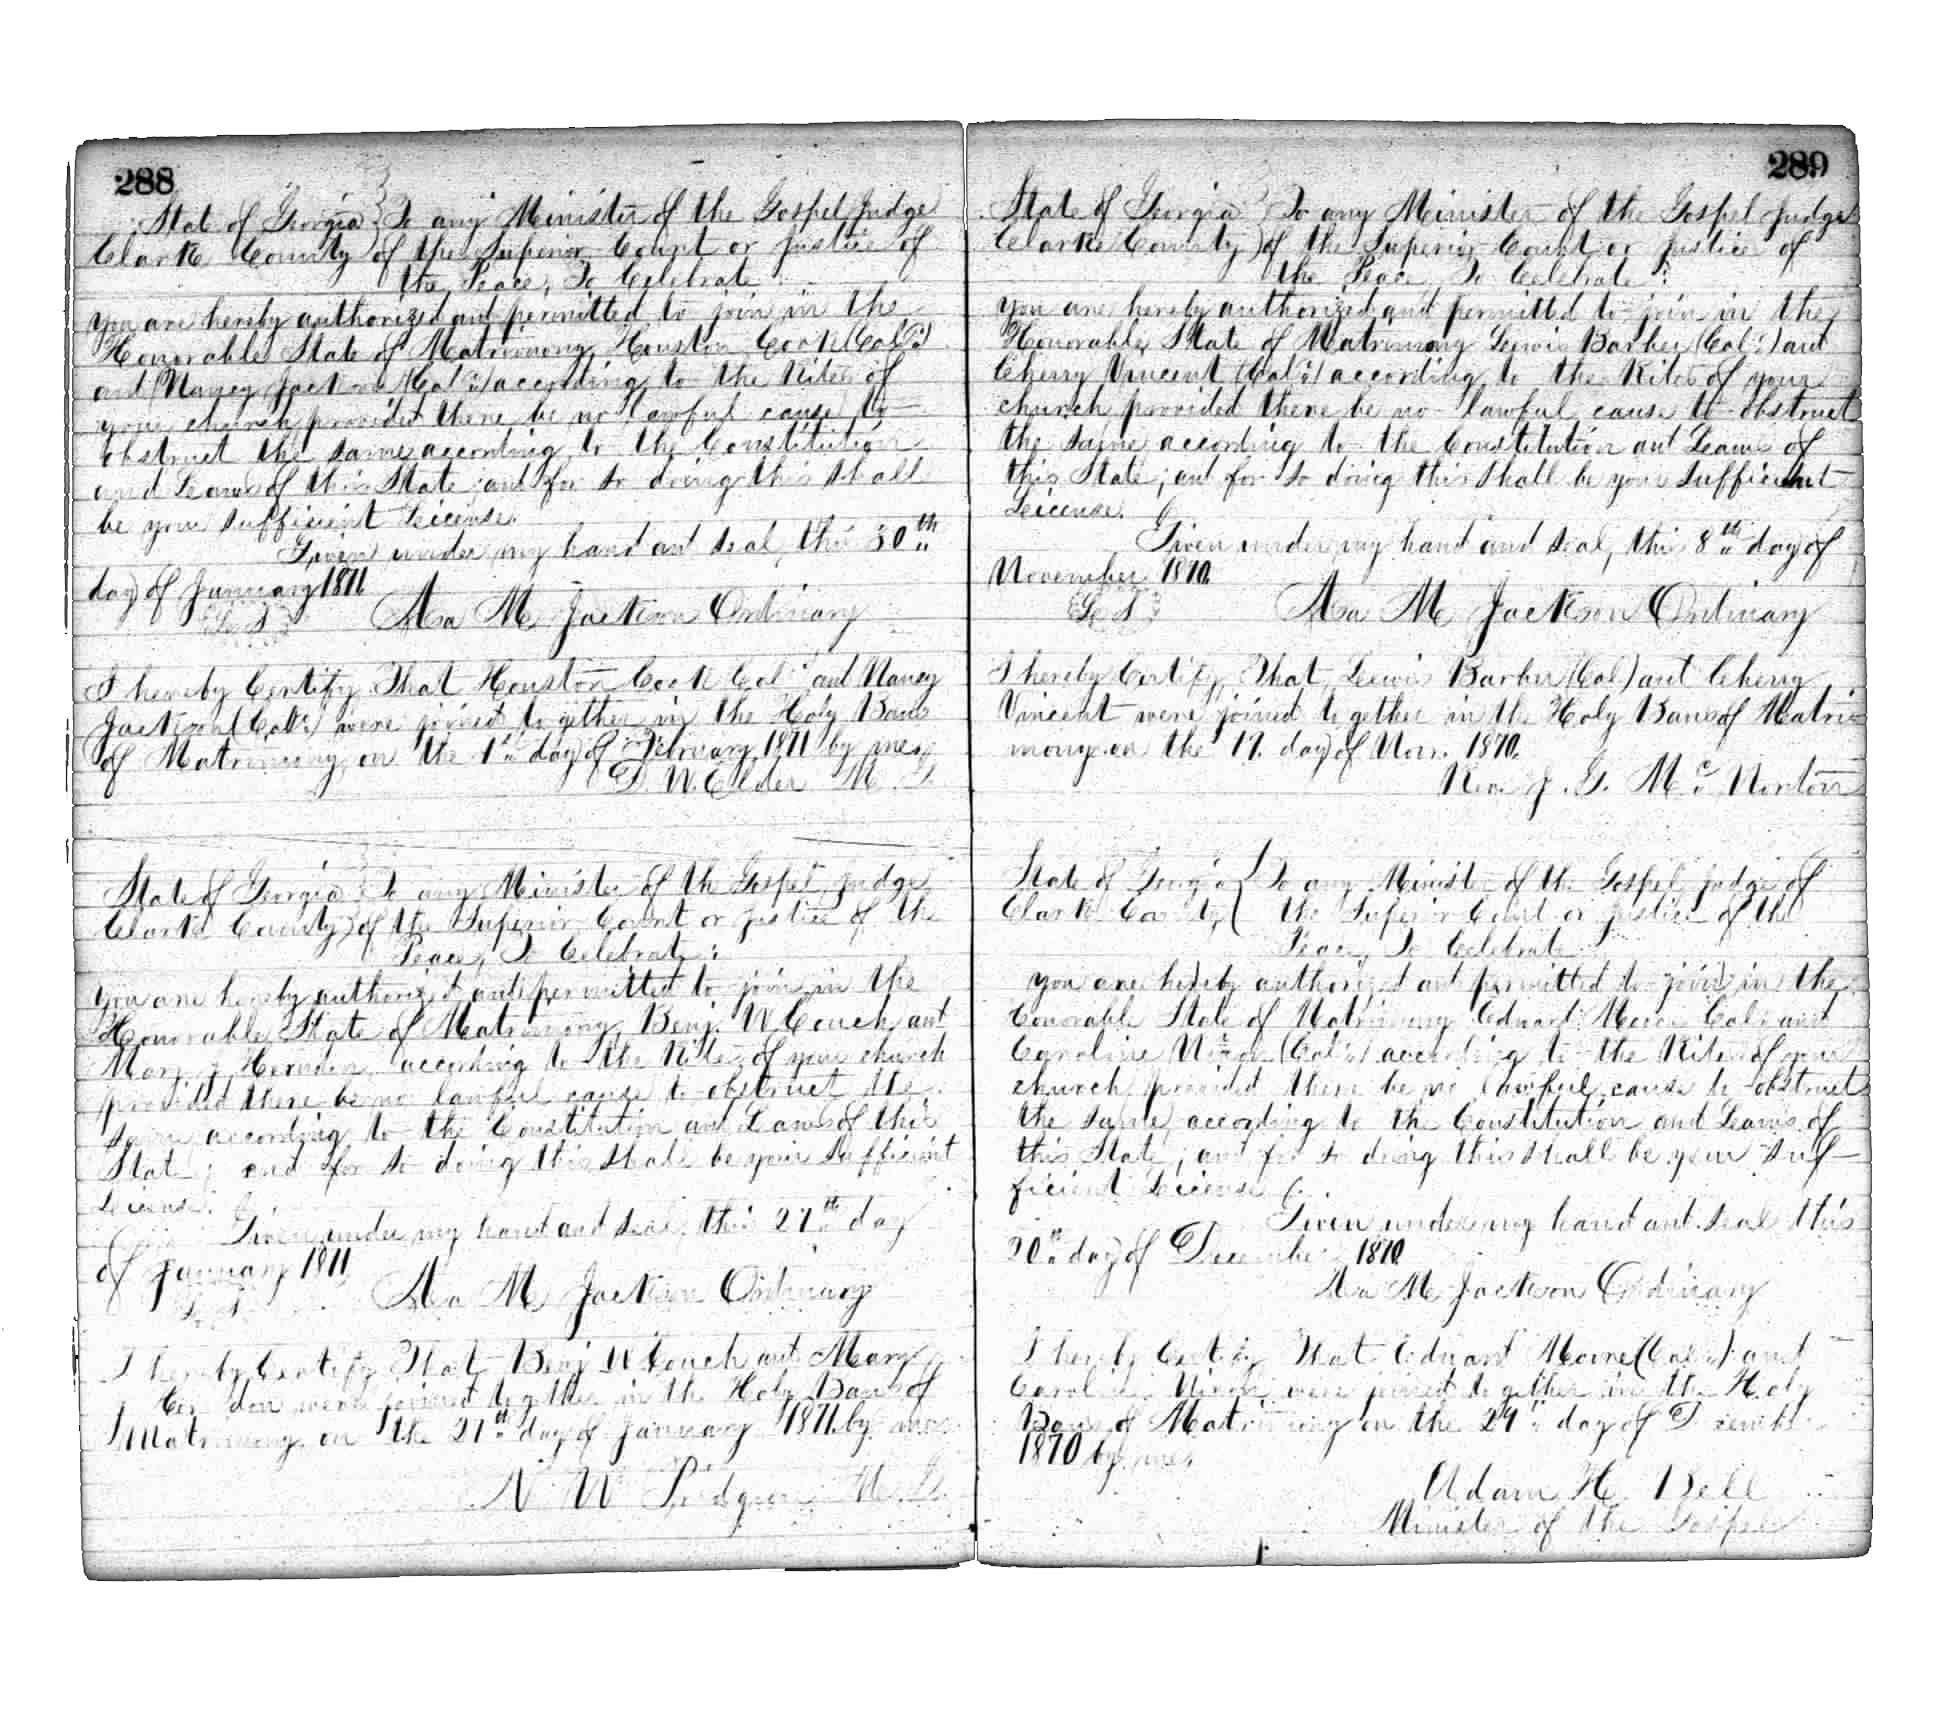 288
State of Georgia } To any Minister of the Gospel Judge
Clark County of the Superior Court or Justice of
the Peace, To Celebrate
you are hereby authorized and permitted to join in the
Honorable State of Matrimony Houston Cook (Cold)
and Nancy Jackson (Cold) according to the Rites of
your church provided there be no lawful cause to
obstruct the same according to the Constitution
and Laws of this State, and for so doing this shall
be your sufficient License.
Given under my hand and seal, this 30th
day of January 1871
L S Asa M Jackson Ordinary
I hereby Certify That Houston Cook Cold and Nancy
Jackson (Cold) were joined together in the Holy Bans
of Matrimony on the 1st day of February 1871 by me,
D. W. Elder M. G.
State of Georgia } To any Minister of the Gospel, Judge
Clark County } of the Superior Court or Justice of the
Peace, To Celebrate:
you are hereby authorized and permitted to join in the
Honorable State of Matrimony Benj. W Couch and
Mary J Hernden according to the Rites of your church
provided there be no lawful cause to obstruct the
same according to the Constitution and Laws of this
State; and for so doing this shall be your sufficient
License.
Given under my hand and seal, this 27th day
of January 1871
L. S. Asa M Jackson Ordinary
I hereby Certify That Benj W Couch and Mary
J were joined together in the Holy Bans of
Matrimony on the 27th day of January 1871 by me
N W M. G.
289
State of Georgia } To any Minister of the Gospel Judge
Clarke County } of the Superior Court or Justice of
the Peace To Celebrate:
you are hereby authorized and permitted to join in the
Honorable State of Matrimony Lewis Barber (Cold) and
Cherry Vincent (Cold) according to the Rites of your
church provided there be no lawful cause to obstruct
the same according to the Constitution and Laws of
this State; and for so doing this shall be your sufficient
License.
Given under my hand and seal, this 8th day of
November 1870.
L S Asa M Jackson Ordinary
I hereby Certify That Lewis Barber (Col) and Cherry
Vincent were joined together in the Holy Bans of Matri
mony on the 17. day of Nov. 1870.
Rev. J. G. Mc Norton
State of Georgia { To any Minister of the Gospel, Judge of
Clark County, { the Superior Court or Justice of the
Peace, To Celebrate
you are hereby authorized and permitted to join in the
Honorable State of Matrimony Edward Moore Cold and
Caroline Nixon (Cold) according to the Rites of your
church provided there be no lawful cause to obstruct
the same according to the Constitution and Laws of
this State; and for so doing this shall be your suf-
ficient License.
Given under my hand and seal this
20th day of December 1870
Asa M Jackson Ordinary
I hereby Certify That Edward Moore (Cold) and
Caroline Nixon were joined together in the Holy
Bans of Matrimony on the 29th day of Decemb
1870 by me,
Adam H. Bell
Minister of the Gospel